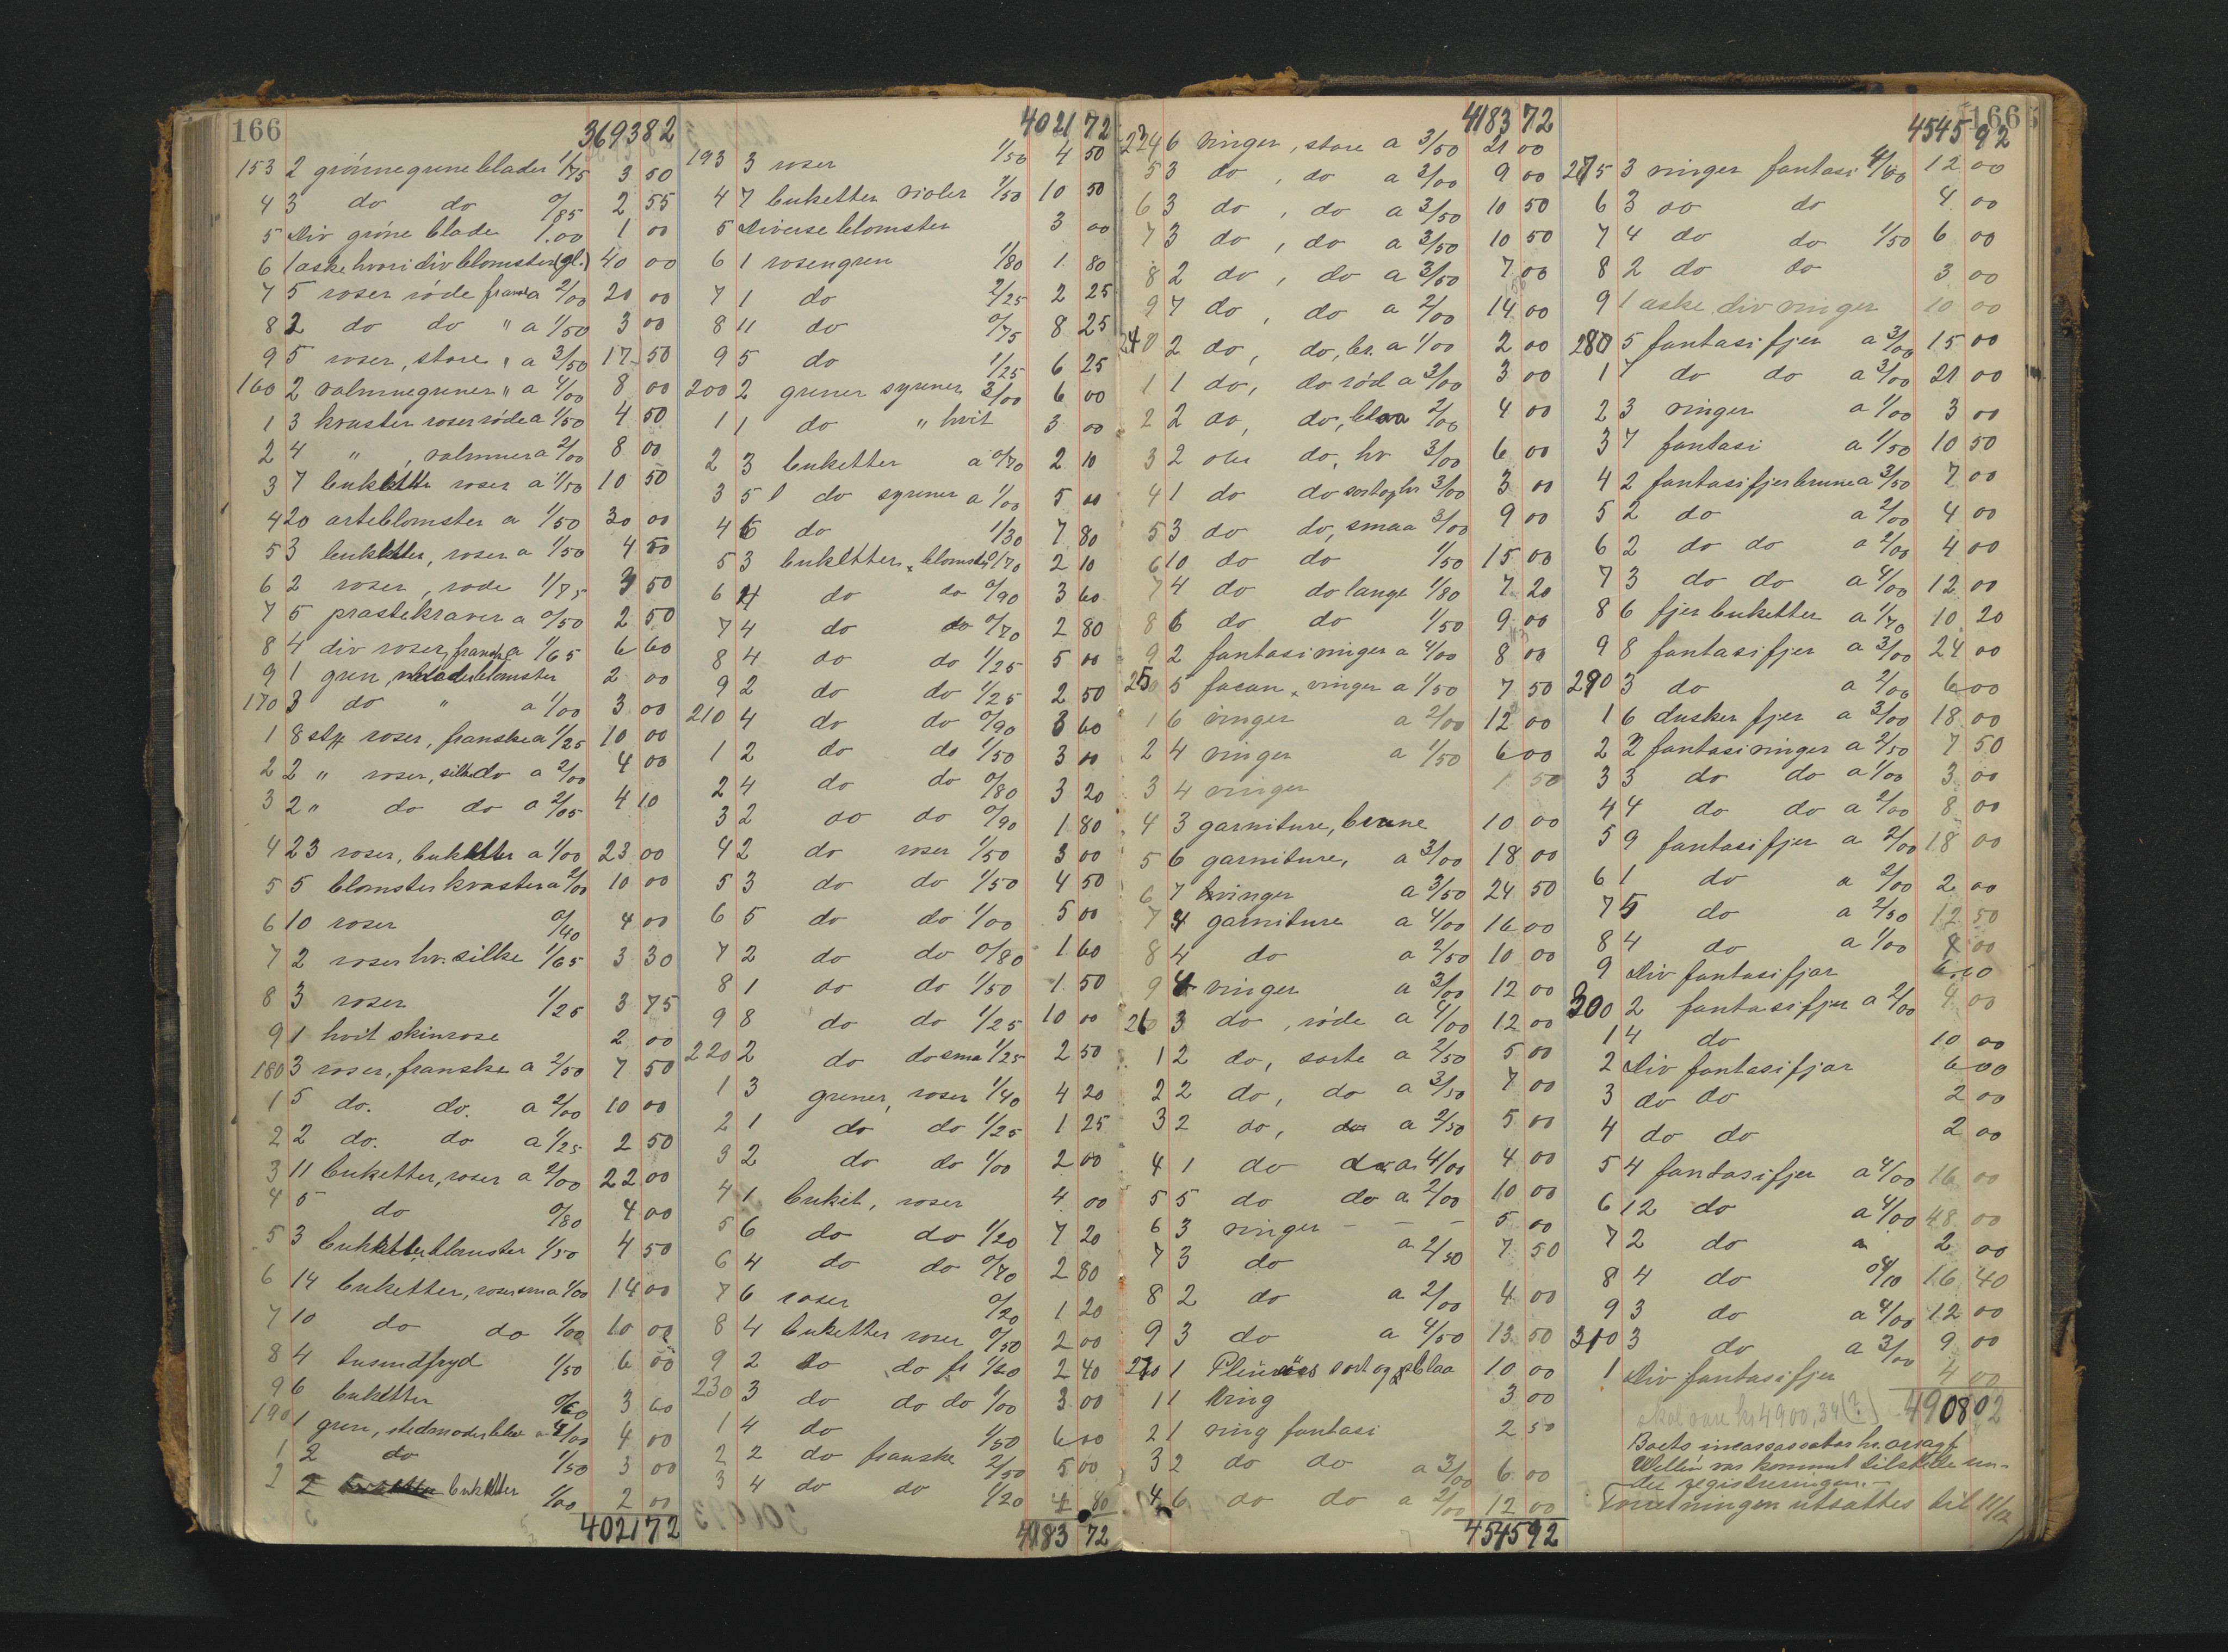 166
3693 82
153 2 grönne grene blader 1/75 3 50
4 3 do do 0/85 2 55
5 Div gröne blade 1.00 1 00
6 1 aske hvori div blomster (gl.) 40 00
7 5 roser röde franska 2/00 20 00
8 2 do do " a 1/50 3 00
9 5 roser, store " a 3/50 17 50
160 2 valmuegrener " a 4/00 8 00
1 3 kvaster roser röde a 1/50 4 50
2 4 " , valmuer a 2/00 8 00
3 7 buketter roser a 1/50 10 50
4 20 arteblomster a 1/50 30 00
5 3 buketter, roser a 1/50 4 50
6 2 roser, rode 1/75 3 50
7 5 prastekraver a 0/50 2 50
8 4 div roser, franske a 1/65 6 60
9 1 gren, blomster 2 00
170 3 do " a 1/00 3 00
1 8 stk roser, franske a 1/25 10 00
2 2 " roser, silke do a 2/00 4 00
3 2 " do do a 2/05 4 10
4 23 roser, buketter a 1/00 23 00
5 5 blomster kvaster a 2/00 10 00
6 10 roser 0/40 4 00
7 2 roser hv. silke 1/65 3 30
8 3 roser 1/25 3 75
9 1 hvit skinrose 2 00
180 3 roser, franske a 2/50 7 50
1 5 do. do. a 2/00 10 00
2 2 do. do a 1/25 2 50
3 11 buketter, roser a 2/00 22 00
4 5 do 0/80 4 00
5 3 buketter blomster 1/50 4 50
6 14 buketter, roser sma 1/00 14 00
7 10 do do 1/00 10 00
8 4 tusindfryd 1/50 6 00
9 6 buketter 0/60 3 60
190 1 gren, stedmoderblev a 4/00 4 00
1 2 do 1/50 3 00
2 2 buketter 1/00 2 00
4021 72
4021 72
193 3 roser 1/50 4 50
4 7 buketter violer 1/50 10 50
5 Diverse blomster 3 00
6 1 rosengren 1/80 1 80
7 1 do 2/25 2 25
8 11 do 0/75 8 25
9 5 do 1/25 6 25
200 2 grener syrener 3/00 6 00
1 1 do " hvit 3 00
2 3 buketter a 0/70 2 10
3 5 do syrener a 1/00 5 00
4 6 do 1/30 7 80
5 3 buketter, blomster 0/70 2 10
6 4 do do 0/90 3 60
7 4 do do 0/70 2 80
8 4 do do 1/25 5 00
9 2 do do 1/25 2 50
210 4 do do 0/90 3 60
1 2 do do 1/50 3 00
2 4 do do 0/80 3 20
3 2 do do 0/90 1 80
4 2 do roser 1/50 3 00
5 3 do do 1/50 4 50
6 5 do do 1/00 5 00
7 2 do do 0/80 1 60
8 1 do do 1/50 1 50
9 8 do do 1/25 10 00
220 2 do do sma 1/25 2 50
1 3 grener, roser 1/40 4 20
2 1 do do 1/25 1 25
3 2 do do 1/00 2 00
4 1 buket, roser 4 00
5 6 do do 1/20 7 20
6 4 do do 0/70 2 80
7 6 roser 0/20 1 20
8 4 buketter roser 0/50 2 00
9 2 do do fr 1/20 2 40
230 3 do do do 1/00 3 00
1 4 do 1/50 6 00
2 2 do franske 2/50 5 00
3 4 do do 1/20 4 80
4183 72
4183 72
234 6 vinger, store a 3/50 21 00
5 3 do , do a 3/00 9 00
6 3 do , do a 3/50 10 50
7 3 do , do a 3/50 10 50
8 2 do , do a 3/50 7 00
9 7 do , do a 2/00 14 00
240 2 do, do, br. a 1/00 2 00
1 1 do, do röd a 3/00 3 00
2 2 do, do, blaa 2/00 4 00
3 2 do do, hv 3/00 6 00
4 1 do do sort og hv 3/00 3 00
5 3 do do, smaa 3/00 9 00
6 10 do do 1/50 15 00
7 4 do do lange 1/80 7 20
8 6 do do 1/50 9 00
9 2 fantasivinger a 4/00 8 00
250 5 facan vinger a 1/50 7 50
1 6 vinger a 2/00 12 00
2 4 vinger a 1/50 6 00
3 4 vinger 1 50
4 3 garniture, brune 10 00
5 6 garniture, a 3/00 18 00
6 7 vinger a 3/50 24 50
7 4 garniture a 4/00 16 00
8 4 do a 2/50 10 00
9 4 vinger a 3/00 12 00
260 3 do , röde a 4/00 12 00
1 2 do, sorte a 2/50 5 00
2 2 do, do a 3/50 7 00
3 2 do, do a 2/50 5 00
4 1 do do a 4/00 4 00
5 5 do do a 2/00 10 00
6 3 vinger - - - 5 00
7 3 do a 2/50 7 50
8 2 do a 2/00 4 00
9 3 do a 4/50 13 50
270 1 sort og blaa 10 00
1 1 Ving 3 00
2 1 ving fantasi 2 50
3 2 do do a 3/00 6 00
4 6 do do a 2/00 12 00
4545 92
166
4545 92
275 3 vinger fantasi 4/00 12 00
6 3 do do 4 00
7 4 do do 1/50 6 00
8 2 do do 3 00
9 1 aske div vinger 10 00
280 5 fantasifjer a 3/00 15 00
1 7 do do a 3/00 21 00
2 3 vinger a 1/00 3 00
3 7 fantasi a 1/50 10 50
4 2 fantasifjer brune a 3/50 7 00
5 2 do a 2/00 4 00
6 2 do do a 2/00 4 00
7 3 do do a 4/00 12 00
8 6 fjer buketter a 1/70 10 20
9 8 fantasifjer a 3/00 24 00
290 3 do a 2/00 6 00
1 6 dusker fjer a 3/00 18 00
2 2 fantasivinger a 2/50 7 50
3 3 do do a 1/00 3 00
4 4 do do a 2/00 8 00
5 9 fantasifjer a 2/00 18 00
6 1 do a 2/00 2 00
7 5 do a 2/50 12 50
8 4 do a 1/00 4 00
9 Div fantasifjær 6.00
300 2 fantasifjer a 2/00 4 00
1 4 do 10 00
2 Div fantasifjær 6 00
3 do do 2 00
4 do do 2 00
5 4 fantasifjer a 4/00 16 00
6 12 do a 4/00 48 00
7 2 do a 2 00
8 4 do 16 40
9 3 do a 4/00 12 00
310 3 do a 3/00 9 00
1 Div fantasifjer 4 00
skal være kr 4900,34 (?) 4908 02
Boets incassosatar hr. orsagf.
Wellén var kommet tilstede un-
der registreringen.-
Forretningen utsattes til 11/12